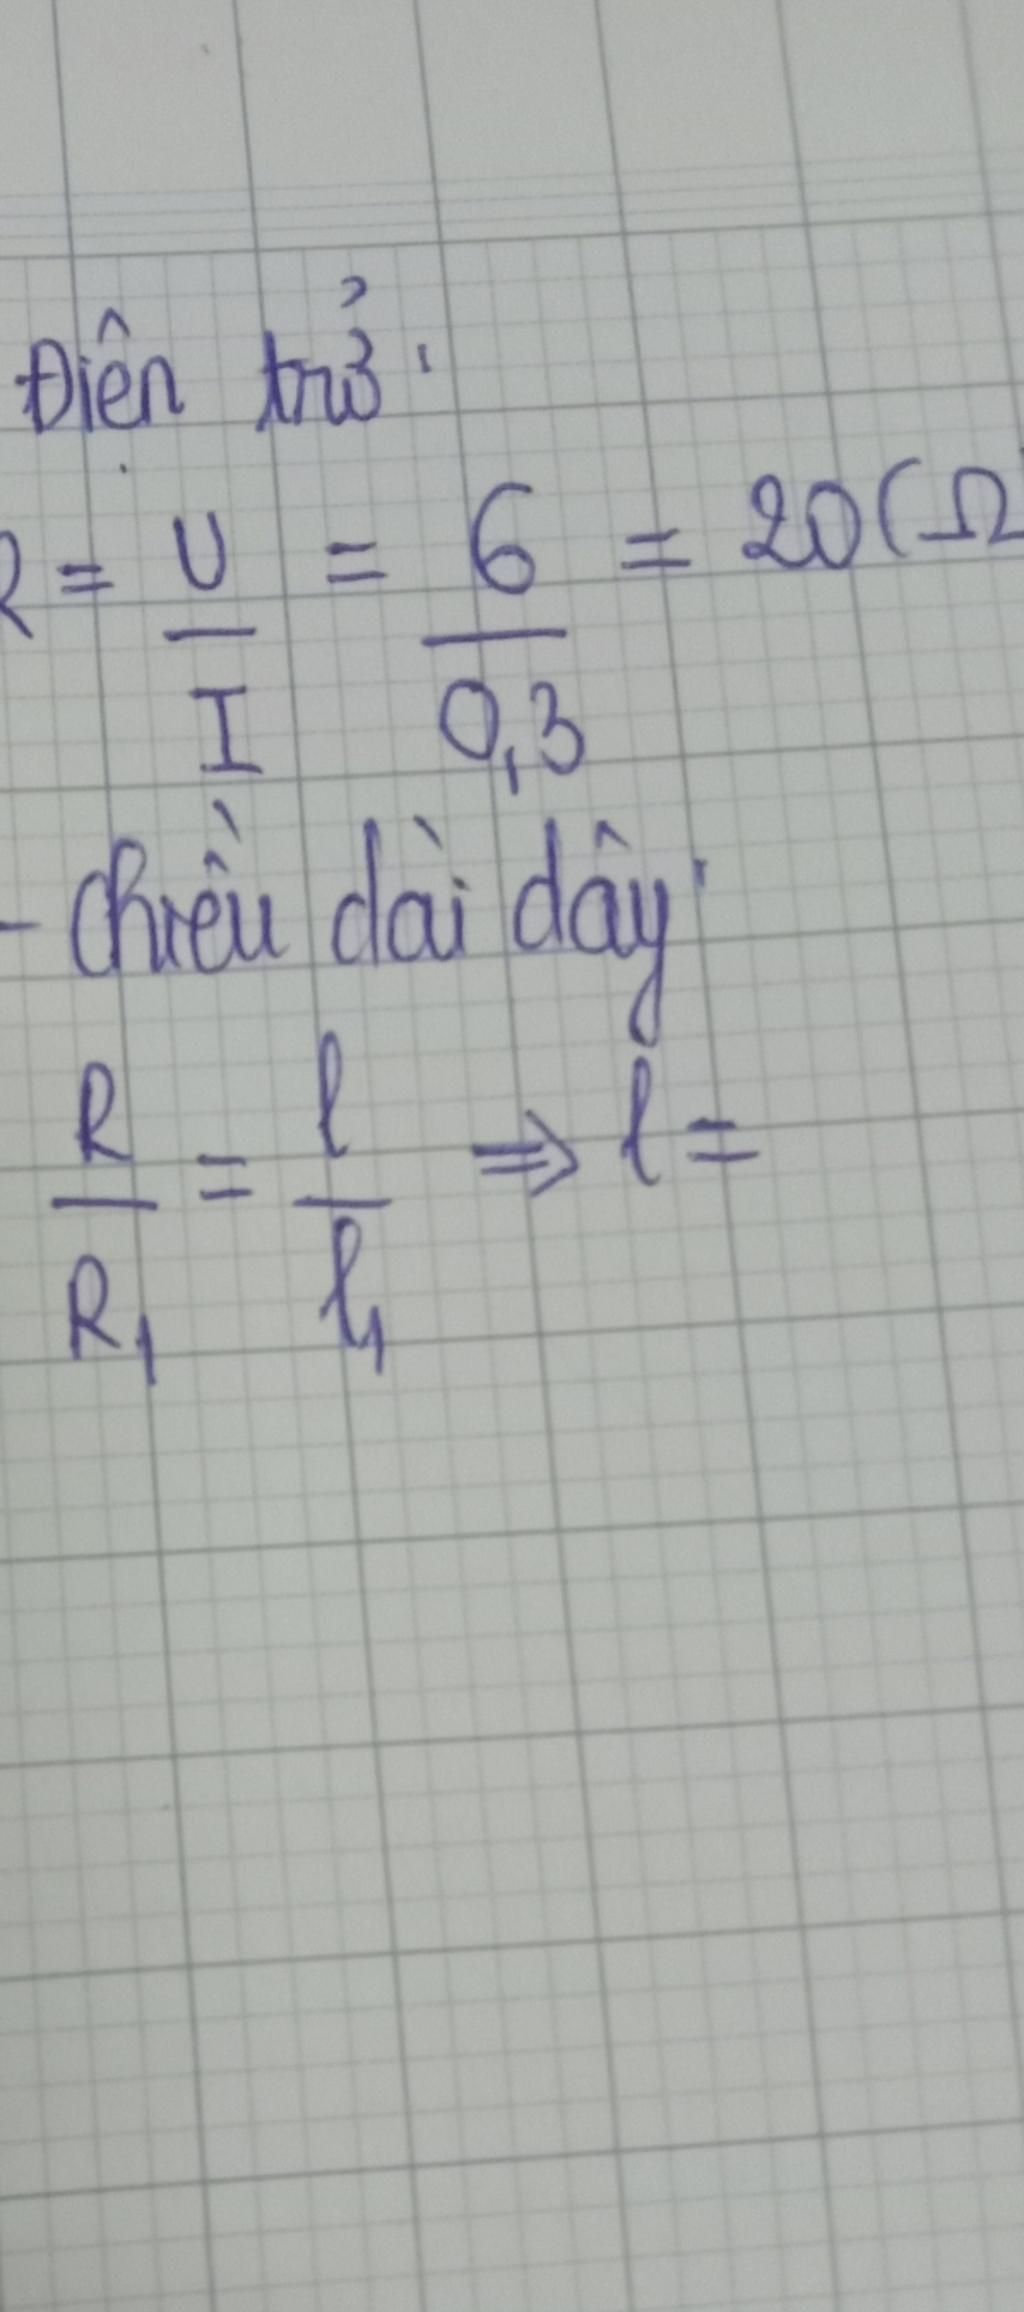 Điện trở:
R = U/I = 6/0,3 = 20 (Ω
- Chiều dài dây:
R/R₁ = l/l₁ ⇒ l =